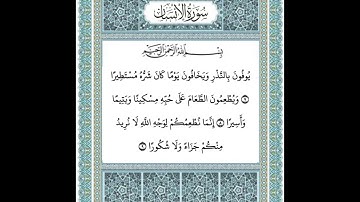 سُورَةُ الْإِنْسَان
بِسْمِ اللَّهِ الرَّحْمَٰنِ الرَّحِيمِ
يُوفُونَ بِالنَّذْرِ وَيَخَافُونَ يَوْمًا كَانَ شَرُّهُ مُسْتَطِيرًا
۝٧ وَيُطْعِمُونَ الطَّعَامَ عَلَى حُبِّهِ مِسْكِينًا وَيَتِيمًا
وَأَسِيرًا ۝٨ إِنَّمَا نُطْعِمُكُمْ لِوَجْهِ اللَّهِ لَا نُرِيدُ
مِنْكُمْ جَزَاءً وَلَا شُكُورًا ۝٩